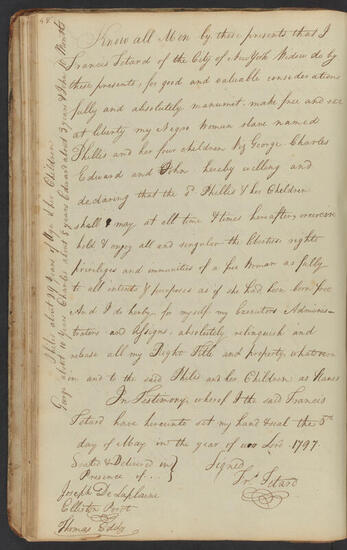 48
Know all Men by these presents that I
Francis Tetard of the City of New York Widow do by
these presents, for good and valuable considerations
fully and absolutely manumit, make free and set
at liberty my Negro Woman slave named
Phillis and her four children Viz George Charles
Edward and John hereby willing and
declaring that the sd Phillis & her Children
shall & may at all time & times hereafter exercise
hold & enjoy all and singular the liberties rights
priviliges and immunities of a free Woman as fully
to all intents & purposes as if she had been born free
And I do hereby for myself my Executors Adminis-
trators and Assigns, absolutely relinquish and
release all my Right Title and property whatsoever
in and to the said Phillis and her Children as Slaves
In Testimony whereof I the said Francis
Tetard have hereunto set my hand & seal the 5th
day of May in the year of our Lord 1797.
Sealed & Delivered in
Presence of . .
Signed
Frs Tetard
Joseph Delaplaine
Elliston Perot
Thomas Eddy
Phillis about 39 Years of Age & her Children
George about 11 Years Charles about 8 years Edward about 3 years & John 10 Months